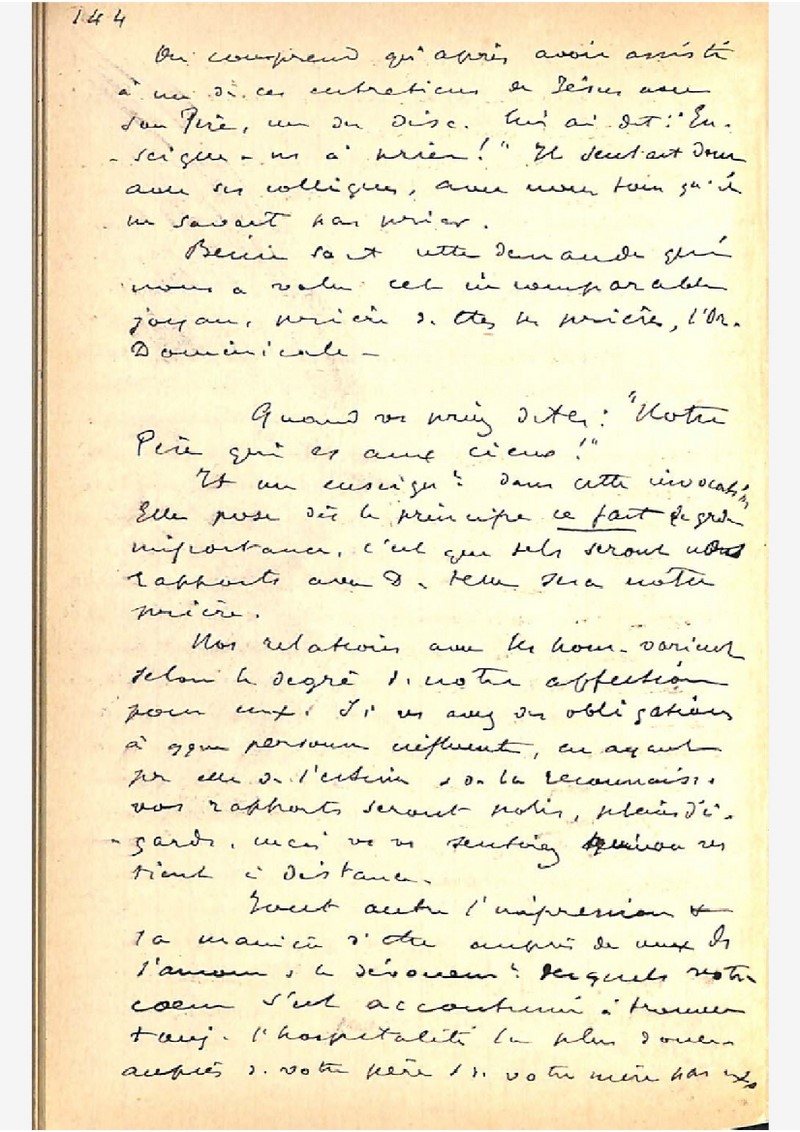 144
On comprend qu'après avoir assisté
à un de ces entretiens de Jésus avec
son Père, un des disc. lui ai dit: "En-
-seigne-ns à prier!" Il sentait donc
avec ses collègues, avec nous tous qu'il
ne savait pas prier.
Bénie soit cette demande qui
nous a valu cet incomparable
joyau, prière de ttes les prières, l'Or.
Dominicale -
Quand vs priez dites: "Notre
Père qui es aux cieux!"
Il est un enseign^t dans cette invocati^n
Elle pose dès le principe ce fait de grde
importance, c'est que tels seront nos
rapports avec D. telle sera notre
prière.
Nos relations avec les hom. varient
selon le degré de notre affection
pour eux. Si vs avez des obligations
à qque personne influente, en ayant
pr elle de l'estime & de la reconnaiss.
vos rapports seront polis, pleins d'é-
gards, mais vs vs sentirez qu'on vs
tient à distance.
Tout autre l'impression &
la manière d'être auprès de ceux de
l'amour & le dévouem^t desquels votre
coeur s'est accoutumé à trouver
touj. l'hospitalité la plus douce
auprès de votre père & de votre mère par ex.